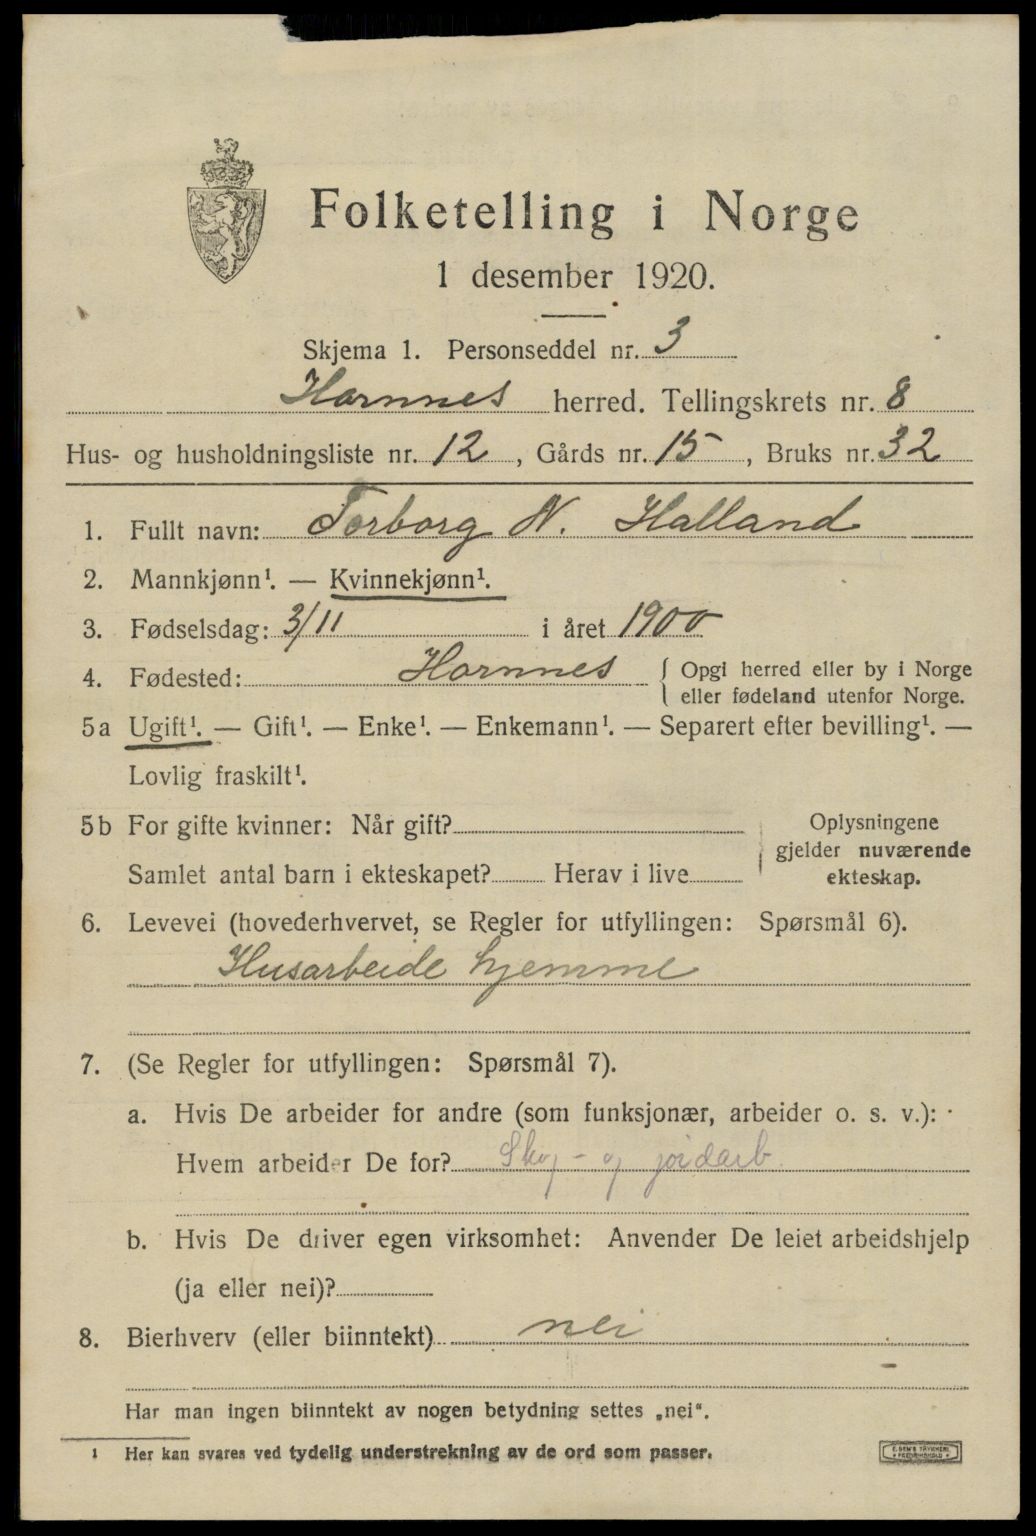 Folketelling i Norge
1 desember 1920.
Skjema 1. Personseddel nr. 3
Hornnes herred. Tellingskrets nr. 8
Hus- og husholdningsliste nr. 12, Gårds nr. 15, Bruks nr. 32
1. Fullt navn: Torborg N. Halland
2. Mannkjønn¹. — Kvinnekjønn¹.
3. Fødselsdag: 3/11 i året 1900
4. Fødested: Hornnes { Opgi herred eller by i Norge
eller fødeland utenfor Norge.
5a Ugift¹. — Gift¹. — Enke¹. — Enkemann¹. — Separert efter bevilling¹. —
Lovlig fraskilt¹.
5b For gifte kvinner: Når gift?
Samlet antal barn i ekteskapet? Herav i live
Oplysningene
gjelder nuværende
ekteskap.
6. Levevei (hovederhvervet, se Regler for utfyllingen: Spørsmål 6).
Husarbeide hjemme
7. (Se Regler for utfyllingen: Spørsmål 7).
a. Hvis De arbeider for andre (som funksjonær, arbeider o. s. v.):
Hvem arbeider De for? Skog- og jordarb.
b. Hvis De driver egen virksomhet: Anvender De leiet arbeidshjelp
(ja eller nei)?
8. Bierhverv (eller biinntekt) nei
Har man ingen biinntekt av nogen betydning settes „nei“.
¹ Her kan svares ved tydelig understrekning av de ord som passer.